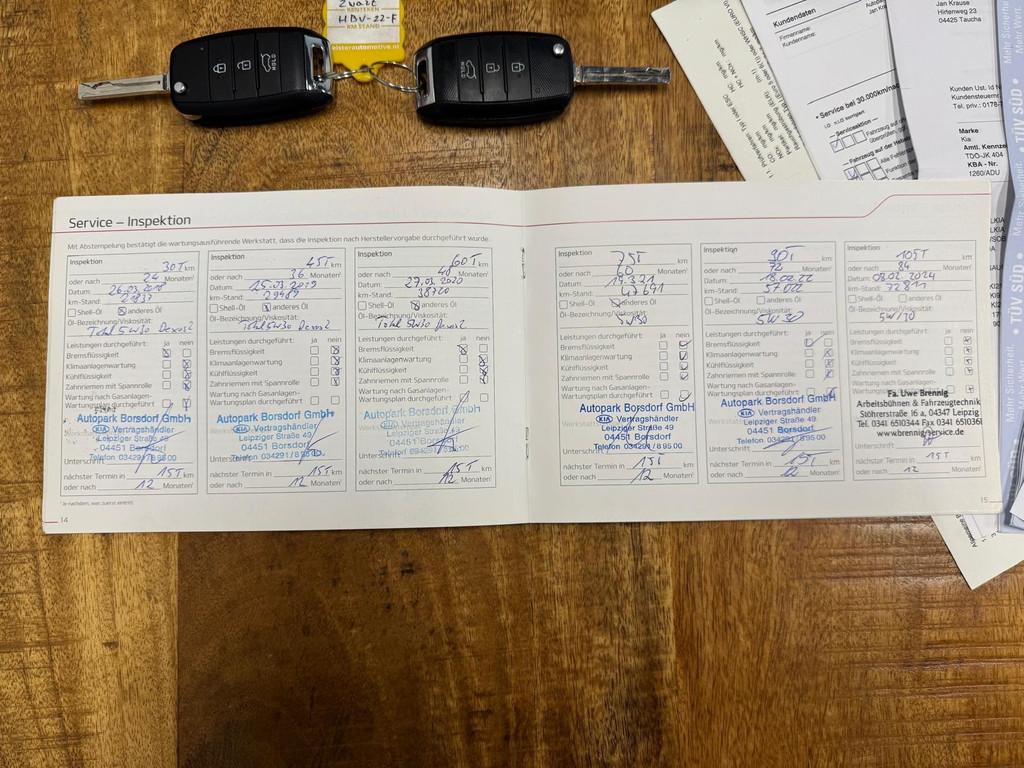 Zwart
KENTEKEN
HBV-22-F
KM STAND
HOLD
HOLD
Kundendaten
Firmenname:
Kundenname:
• Service bei 30.000km/nach
Jan Krause
Hirtenweg 23
04425 Taucha
Kunden Ust. Id N
Kundensteuernr
Tel. priv.: 0178-
Marke
Kia
Amtl. Kennze
TDO-JK 404
KBA - Nr.
1260/ADU
TÜV SÜD
Mehr Sicherhe
Mehr Wert.
Service – Inspektion
Mit Abstempelung bestätigt die wartungsausführende Werkstatt, dass die Inspektion nach Herstellervorgabe durchgeführt wurde.
Inspektion
30T km
oder nach 24 Monaten¹
Datum: 26.03.2018
km-Stand: 21837
Shell-Öl anderes Öl
Öl-Bezeichnung/Viskosität:
Total 5W30 Dexos2
Leistungen durchgeführt: ja nein
Bremsflüssigkeit
Klimaanlagenwartung
Kühlflüssigkeit
Zahnriemen mit Spannrolle
Wartung nach Gasanlagen-
Wartungsplan durchgeführt
Autopark Borsdorf GmbH
KIA Vertragshändler
Leipziger Straße 49
04451 Borsdorf
Telefon 034291/
Unterschrift
nächster Termin in 15T km
oder nach 12 Monaten¹
Inspektion
45T km
oder nach 36 Monaten¹
Datum: 15.03.2019
km-Stand: 29989
Shell-Öl anderes Öl
Öl-Bezeichnung/Viskosität:
Total 5W30 Dexos2
Leistungen durchgeführt: ja nein
Bremsflüssigkeit
Klimaanlagenwartung
Kühlflüssigkeit
Zahnriemen mit Spannrolle
Wartung nach Gasanlagen-
Wartungsplan durchgeführt
Autopark Borsdorf GmbH
KIA Vertragshändler
Leipziger Straße 49
04451 Borsdorf
Telefon 034291/
Unterschrift
nächster Termin in 15T km
oder nach 12 Monaten¹
Inspektion
60T km
oder nach 48 Monaten¹
Datum: 27.03.2020
km-Stand: 38720
Shell-Öl anderes Öl
Öl-Bezeichnung/Viskosität:
Total 5W30 Dexos2
Leistungen durchgeführt: ja nein
Bremsflüssigkeit
Klimaanlagenwartung
Kühlflüssigkeit
Zahnriemen mit Spannrolle
Wartung nach Gasanlagen-
Wartungsplan durchgeführt
Autopark Borsdorf GmbH
KIA Vertragshändler
Leipziger Straße 49
04451 Borsdorf
Unterschrift
nächster Termin in 15T km
oder nach 12 Monaten¹
¹ Je nachdem, was zuerst eintritt.
14
Inspektion
75T km
oder nach 60 Monaten¹
Datum: 19.3.21
km-Stand: 47691
Shell-Öl anderes Öl
Öl-Bezeichnung/Viskosität:
5W30
Leistungen durchgeführt: ja nein
Bremsflüssigkeit
Klimaanlagenwartung
Kühlflüssigkeit
Zahnriemen mit Spannrolle
Wartung nach Gasanlagen-
Wartungsplan durchgeführt
Autopark Borsdorf GmbH
KIA Vertragshändler
Leipziger Straße 49
04451 Borsdorf
Telefon 034291/8 95 00
Unterschrift
nächster Termin in 15T km
oder nach 12 Monaten¹
Inspektion
90T km
oder nach 72 Monaten¹
Datum: 18.02.22
km-Stand: 57.022
Shell-Öl anderes Öl
Öl-Bezeichnung/Viskosität:
5W30
Leistungen durchgeführt: ja nein
Bremsflüssigkeit
Klimaanlagenwartung
Kühlflüssigkeit
Zahnriemen mit Spannrolle
Wartung nach Gasanlagen-
Wartungsplan durchgeführt
Autopark Borsdorf GmbH
KIA Vertragshändler
Leipziger Straße 49
04451 Borsdorf
Telefon 034291/8 95 00
Unterschrift
nächster Termin in 15T km
oder nach 12 Monaten¹
Inspektion
105T km
oder nach 84 Monaten¹
Datum: 08.02.2024
km-Stand: 72811
Shell-Öl anderes Öl
Öl-Bezeichnung/Viskosität:
5W/30
Leistungen durchgeführt: ja nein
Bremsflüssigkeit
Klimaanlagenwartung
Kühlflüssigkeit
Zahnriemen mit Spannrolle
Wartung nach Gasanlagen-
Fa. Uwe Brennig
Arbeitsbühnen & Fahrzeugtechnik
Stöhrerstraße 16 a, 04347 Leipzig
Tel. 0341 6510344 Fax 0341 6510361
www.brennig-service.de
Unterschrift
nächster Termin in 15T km
oder nach 12 Monaten¹
15